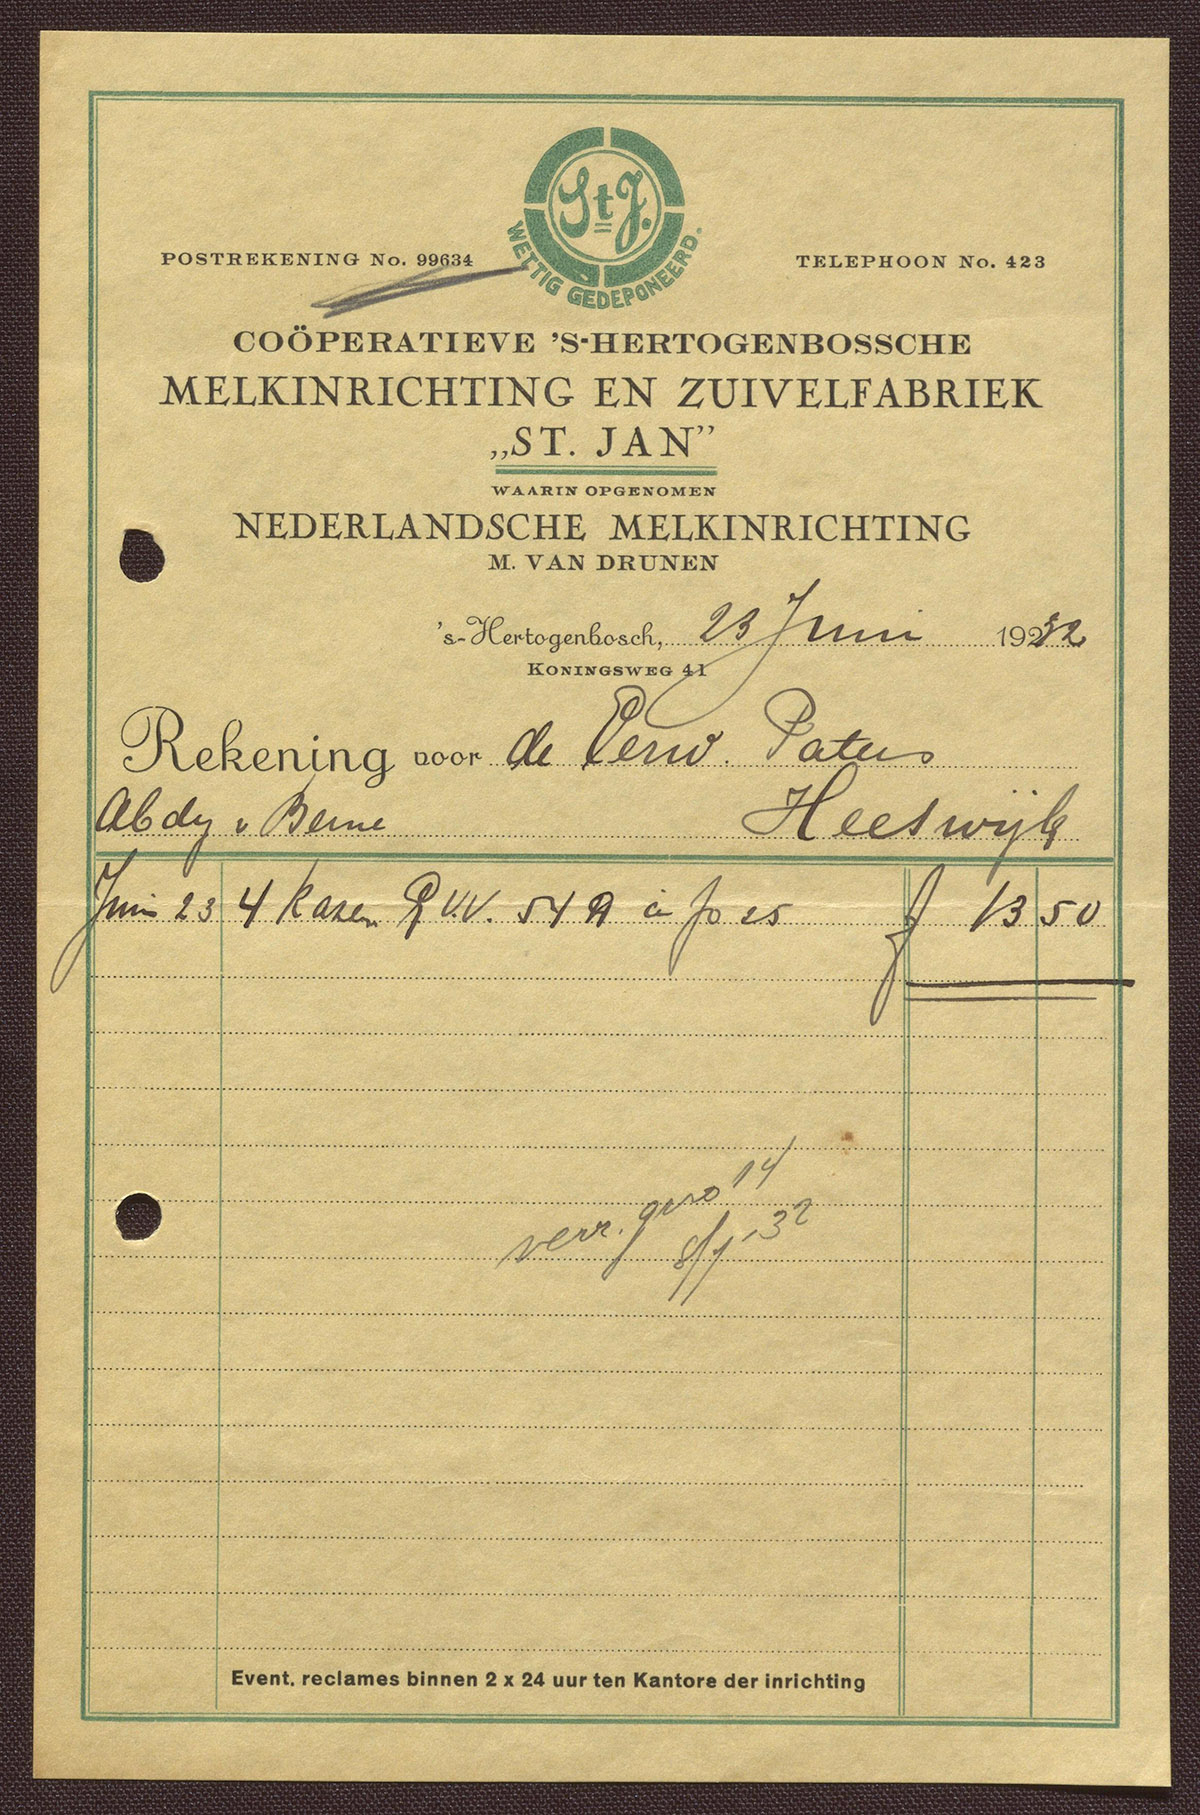 St. J.
WETTIG GEDEPONEERD.
POSTREKENING No. 99634
TELEPHOON No. 423
COÖPERATIEVE 'S-HERTOGENBOSSCHE
MELKINRICHTING EN ZUIVELFABRIEK
„ST. JAN”
WAARIN OPGENOMEN
NEDERLANDSCHE MELKINRICHTING
M. VAN DRUNEN
's-Hertogenbosch, 23 Juni 1932
KONINGSWEG 41
Rekening voor de Eerw. Paters
Abdy v Berne Heeswijk
Juni 23 4 kazen V.V. 54 ℔ à f 0 25 f 13 50
verr. giro 14
8/7 '32
Event. reclames binnen 2 x 24 uur ten Kantore der inrichting